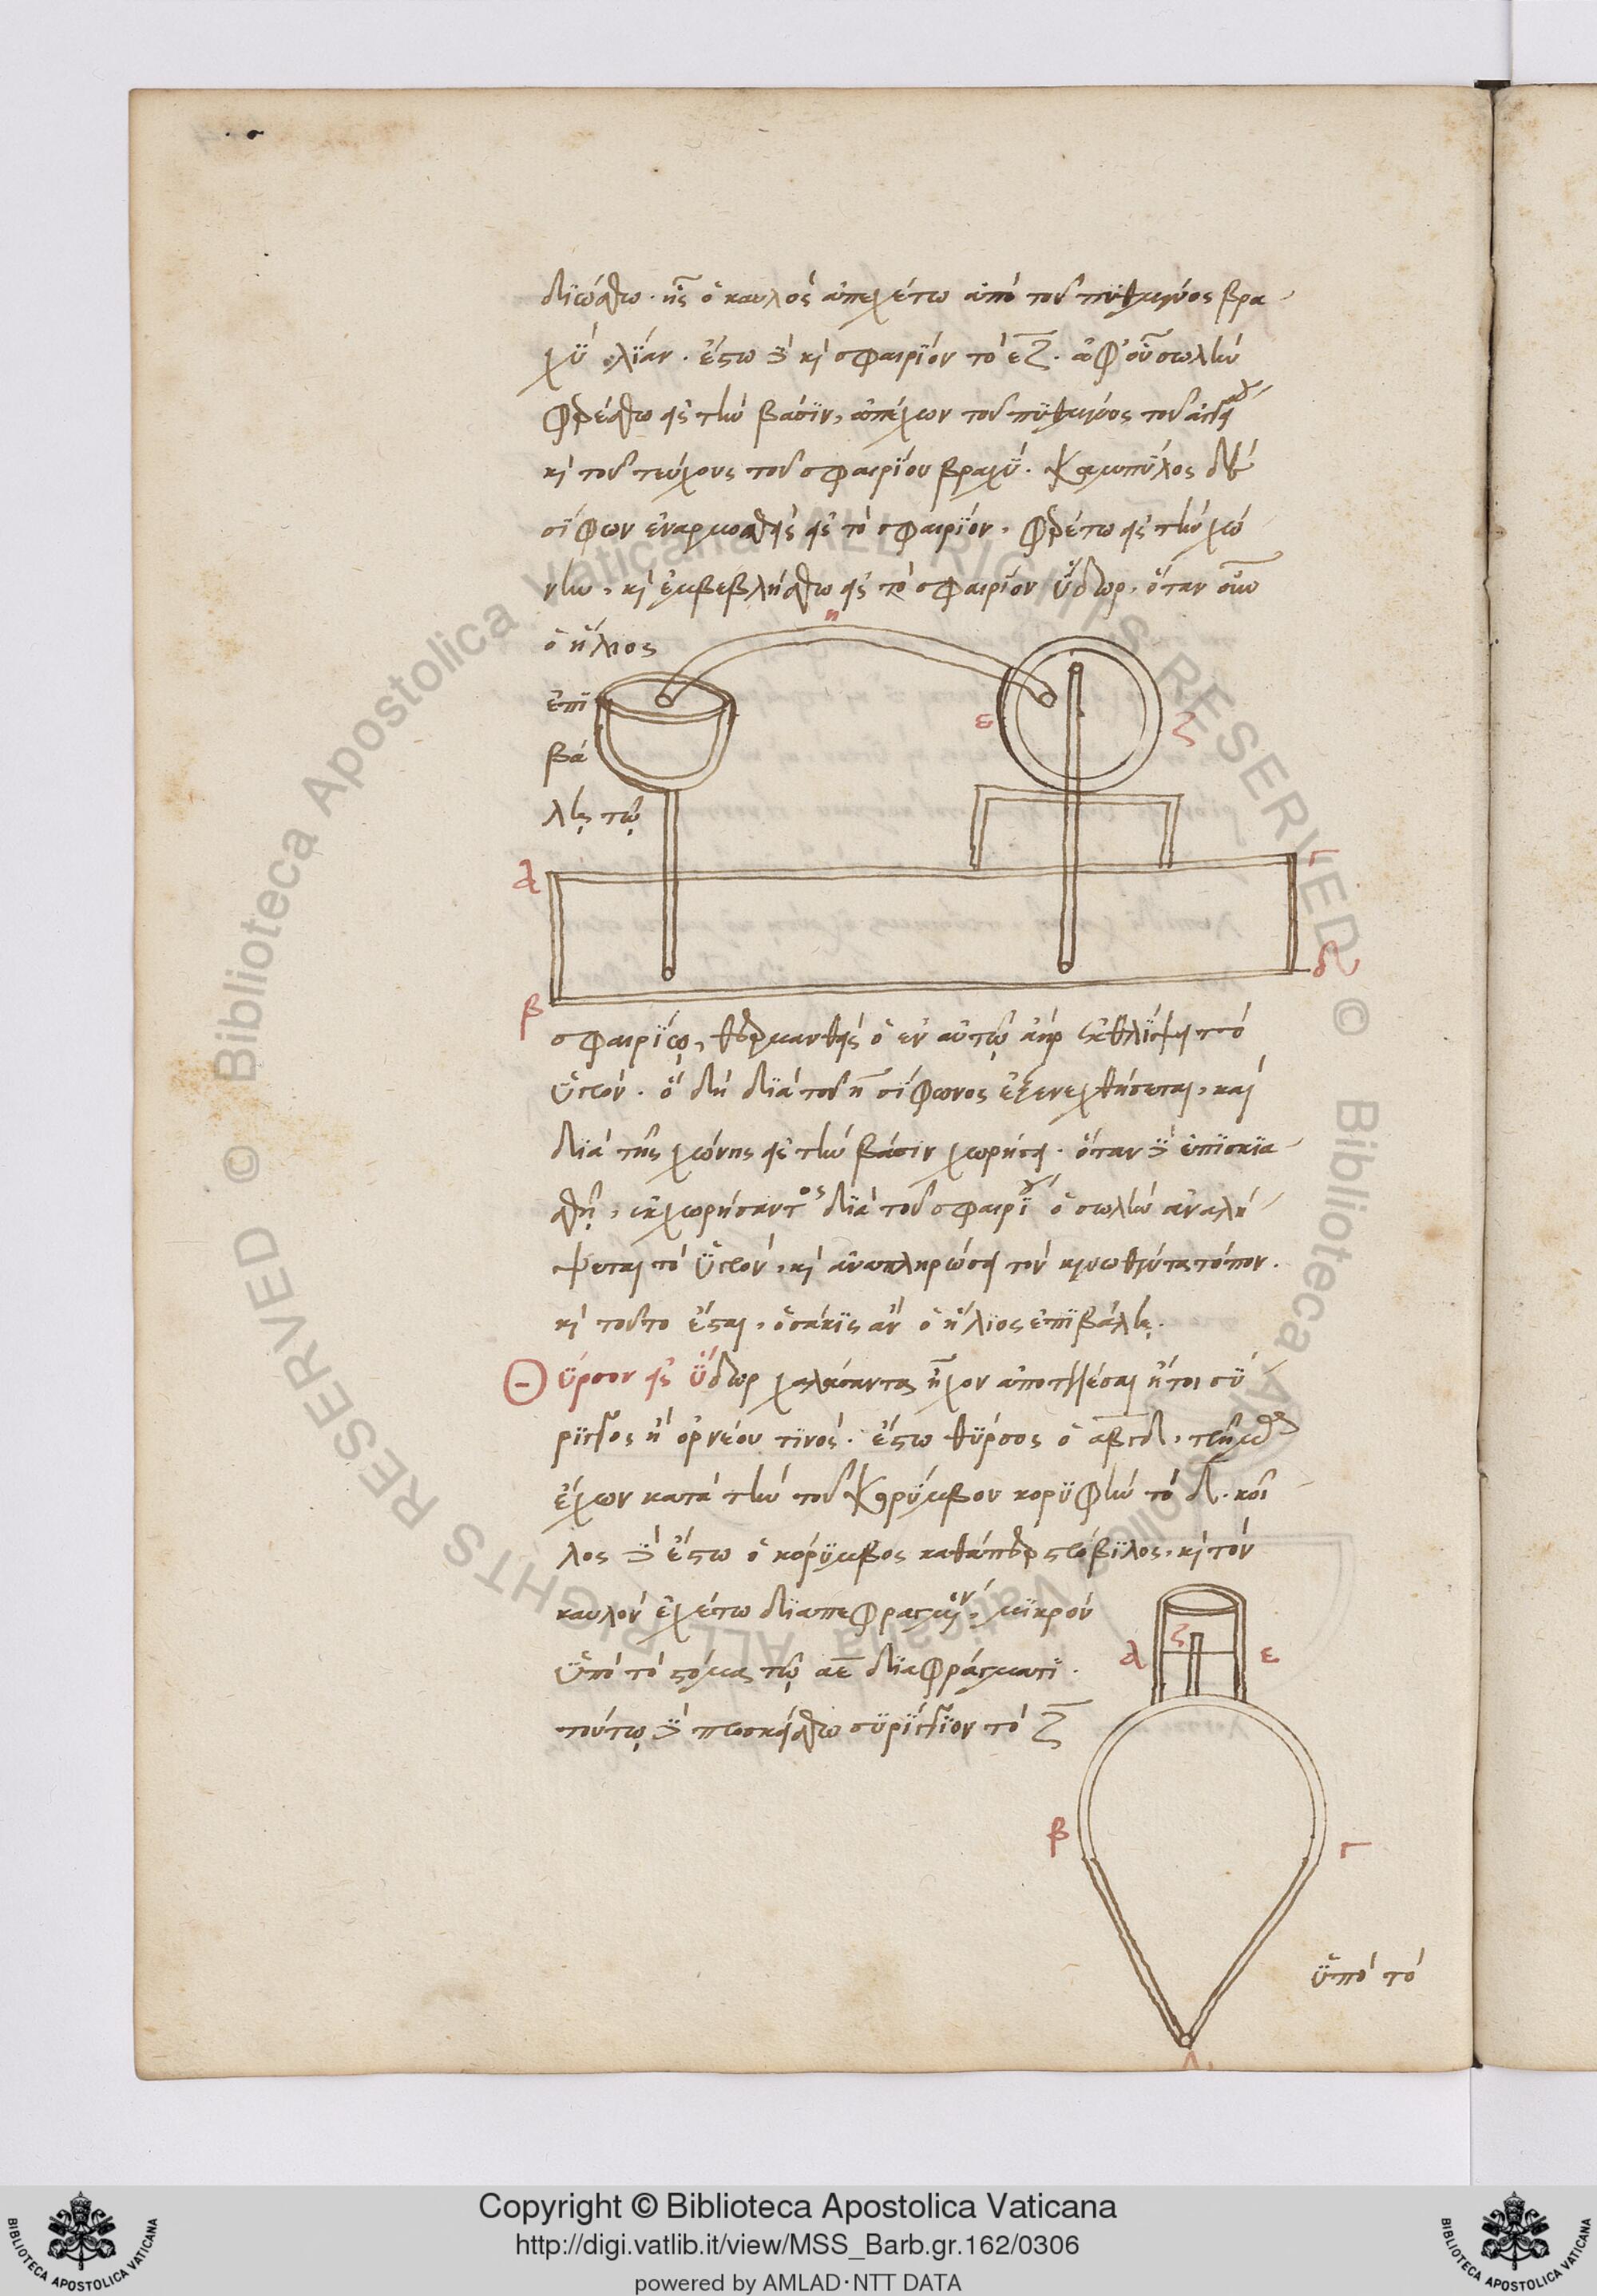 διώσθω. ἧς ὁ καυλὸς ἀπεχέτω ἀπὸ τοῦ πυθμένος βρα
χὺ λίαν. ἔστω δὲ καὶ σφαιρίον τὸ εζ. ἀφ' οὗ σωλὴν
φερέσθω εἰς τὴν βάσιν, ἀπέχων τοῦ πυθμένος τοῦ
καὶ τοῦ τεύχους τοῦ σφαιρίου βραχύ. καμπύλος δὲ
σίφων ἐναρμοσθεὶς εἰς τὸ σφαιρίον, φερέτω εἰς τὴν χώ
νην, καὶ ἐμβεβλήσθω εἰς τὸ σφαιρίον ὕδωρ. ὅταν οὖν
ὁ ἥλιος
η
ἐπι
βά
λῃ τῷ
ε
ζ
α
γ
β
δ
σφαιρίῳ, θερμανθεὶς ὁ ἐν αὐτῷ ἀὴρ ἐκθλίψει τὸ
ὑγρόν. ὃ δὴ διὰ τοῦ η σίφωνος ἐξενεχθήσεται, καὶ
διὰ τῆς χώνης εἰς τὴν βάσιν χωρήσει. ὅταν δὲ ἐπισκια
σθῇ, ἐκχωρήσαντος διὰ τοῦ σφαιρίου ὁ σωλὴν ἀναλή
ψεται τὸ ὑγρόν, καὶ ἀναπληρώσει τὸν κενωθέντα τόπον.
καὶ τοῦτο ἔσται, ὁσάκις ἂν ὁ ἥλιος ἐπιβάλῃ.
Θύρσον εἰς ὕδωρ χαλάσαντα ἦχον ἀποτελέσαι ἤτοι σύ
ριγγος ἢ ὀρνέου τινός. ἔστω θύρσος ὁ αβγδ,
ἔχων κατὰ τὴν τοῦ κορύμβου κορυφὴν τὸ δ. κοῖ
λος δὲ ἔστω ὁ κόρυμβος καθάπερ στρόβιλος, καὶ τὸν
καυλὸν ἐχέτω διαπεφραγμένον, μικρὸν
ὑπὸ τὸ στόμα τῷ αε διαφράγματι.
τούτῳ δὲ προσκείσθω συρίγγιον τὸ ζ
α
ζ
ε
β
γ
δ
ὑπὸ τὸ
Copyright © Biblioteca Apostolica Vaticana
http://digi.vatlib.it/view/MSS_Barb.gr.162/0306
powered by AMLAD·NTT DATA
BIBLIOTECA APOSTOLICA VATICANA
BIBLIOTECA APOSTOLICA VATICANA
© Biblioteca Apostolica Vaticana ALL RIGHTS RESERVED © Biblioteca Apostolica Vaticana ALL RIGHTS RESERVED